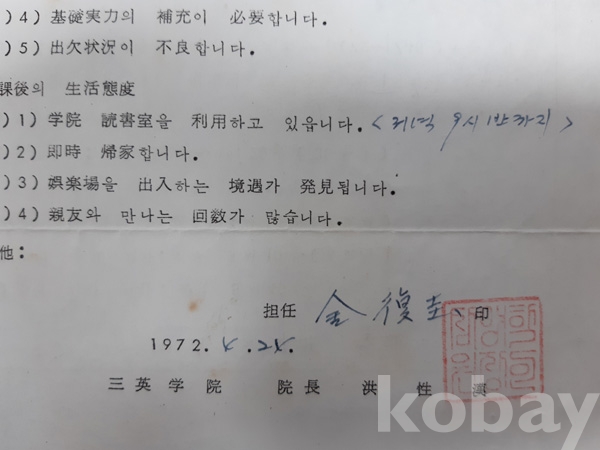 )4) 基礎実力의 補充이 必要합니다.
)5) 出欠状況이 不良합니다.
課後의 生活態度
)1) 学院 読書室을 利用하고 있읍니다. <저녁 9시 반까지>
)2) 即時 帰家합니다.
)3) 娯楽場을 出入하는 境遇가 発見됩니다.
)4) 親友와 만나는 回数가 많습니다.
他:
担任 金復圭 印
1972. 4. 24.
三英学院 院長 洪性
kobay